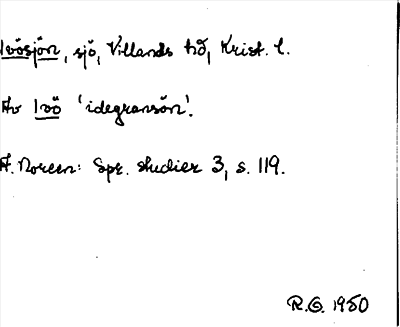 Ivösjön, sjö, Villands hd, Krist. l.
Av Ivö 'idegransön'.
A. Noreen: Spr. studier 3, s. 119.
R.G. 1950